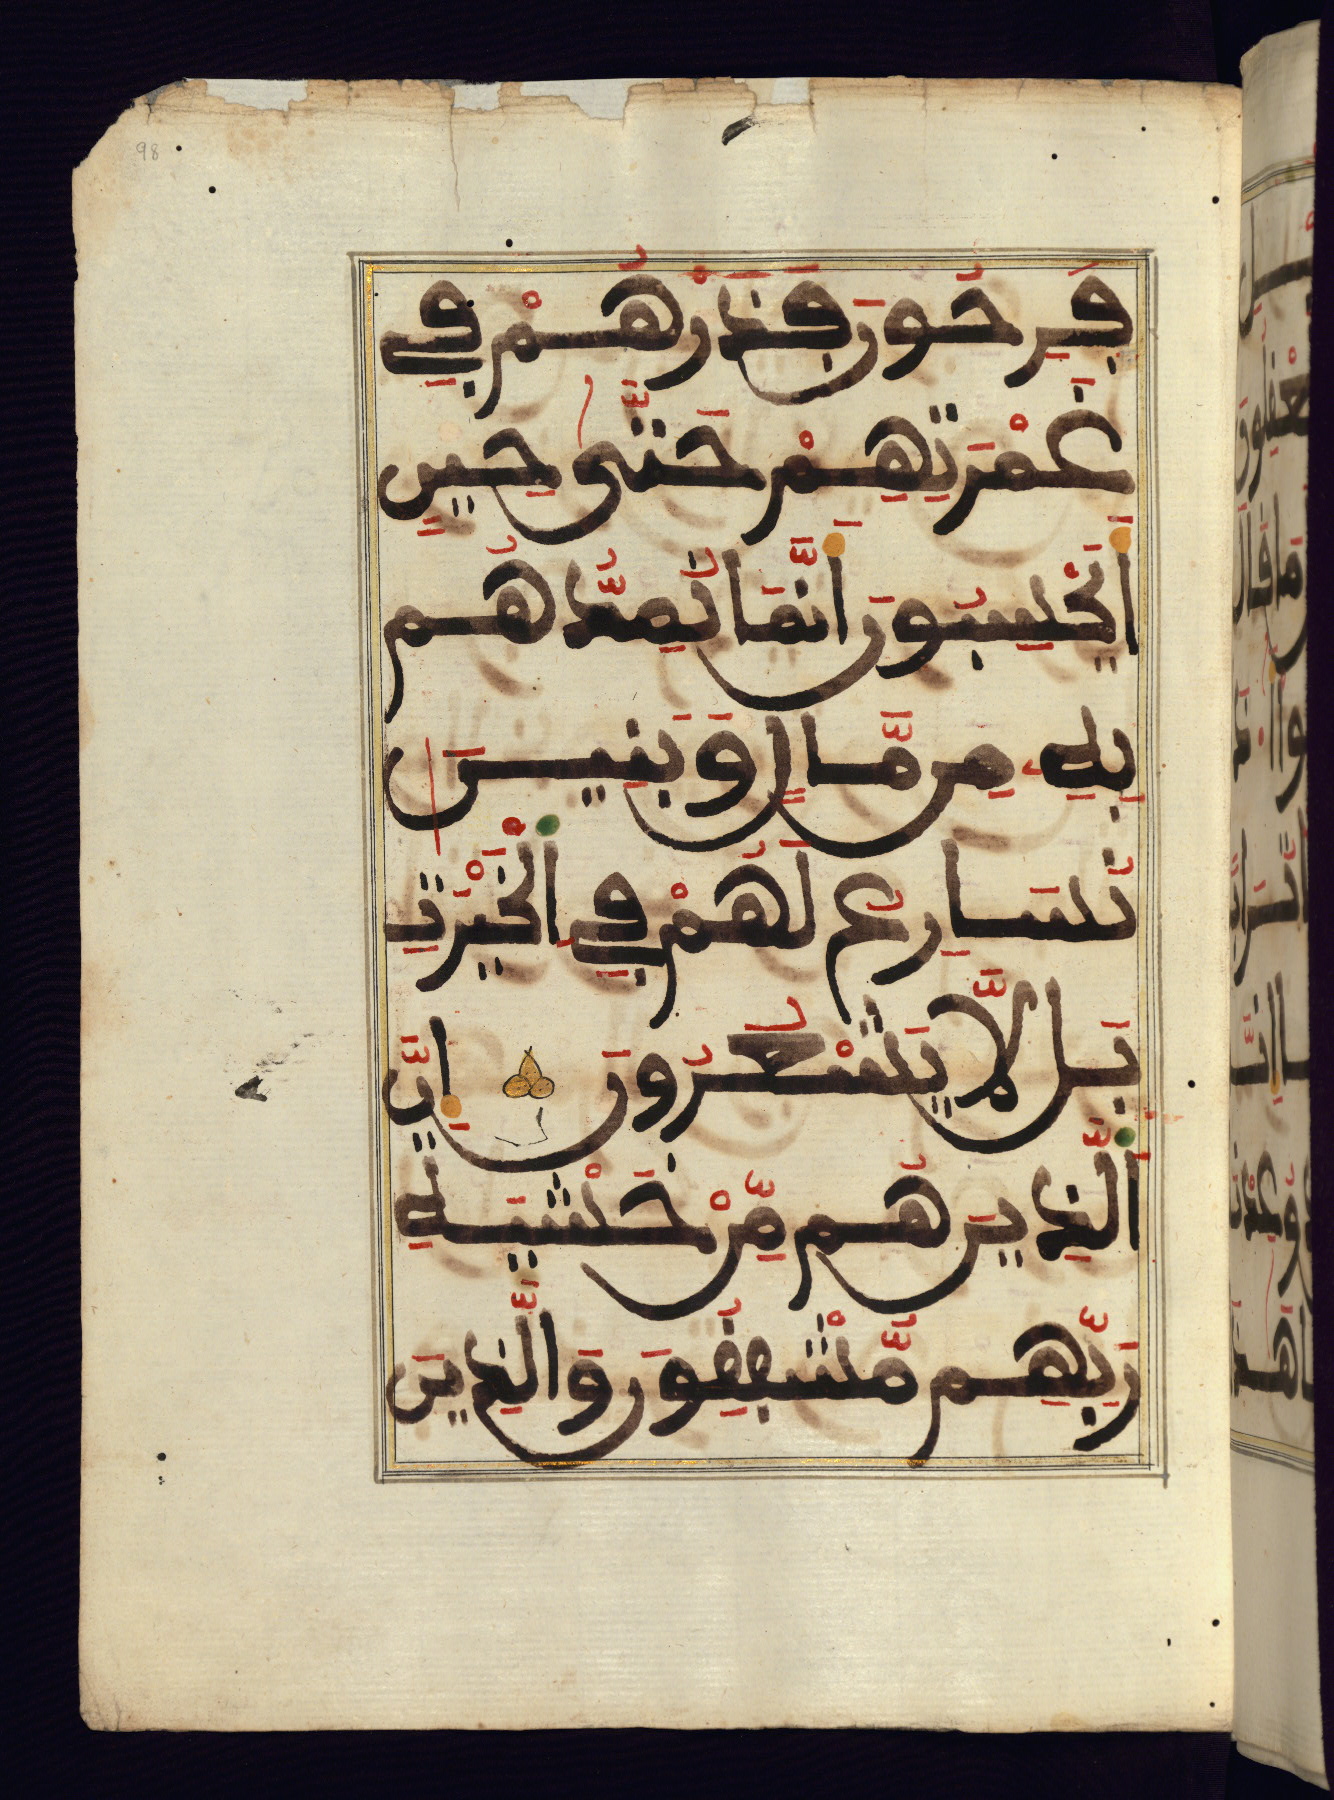 98
فَرِحُونَ فَذَرْهُمْ فِے
غَمْرَتِهِمْ حَتَّىٰ حِينٍ
أَيَحْسِبُونَ أَنَّمَا نُمِدُّهُم
بِهِۦ مِن مَّالٍ وَبَنِينَ
نُسَارِعُ لَهُمْ فِے اِ۬لْخَيْرَٰتِ
بَل لَّا يَشْعُرُونَ إِنَّ
اَ۬لَّذِينَ هُم مِّنْ خَشْيَةِ
رَبِّهِم مُّشْفِقُونَ وَالَّذِينَ